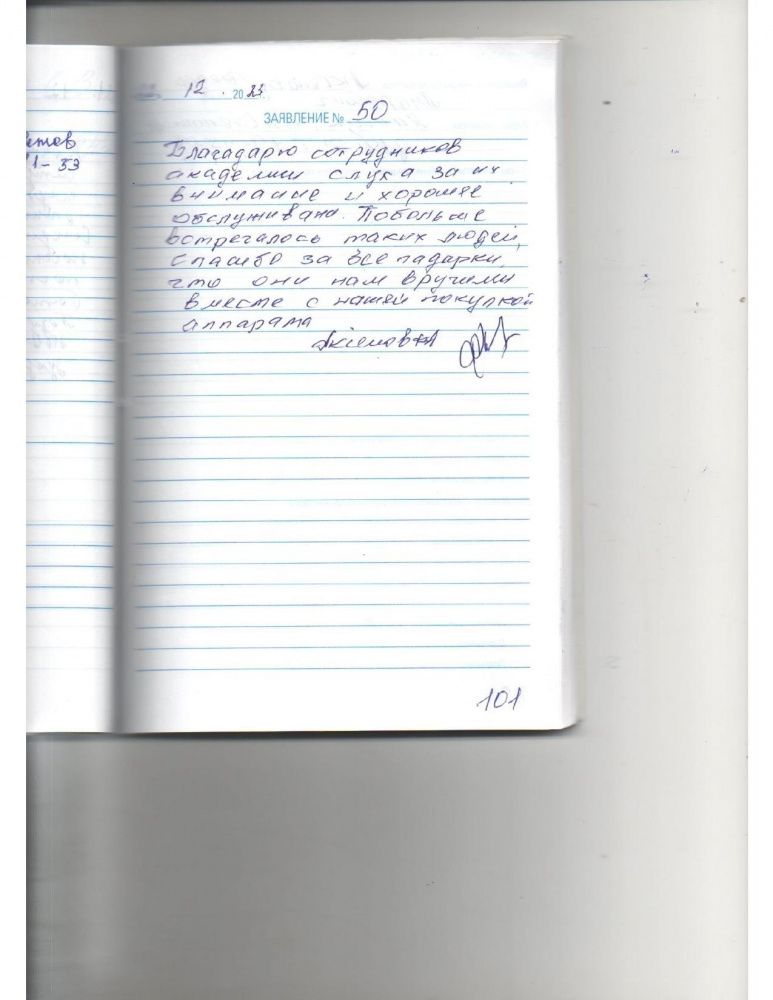 12. 2023.
ЗАЯВЛЕНИЕ № 50
Благадарю сотрудников
академии слуха за их
внимание и хорошее
обслуживани. Побольше
встречалось таких людей,
спасибо за все падарки,
что они нам вручили
вместе с нашей покупкой
аппарата
1-33
101